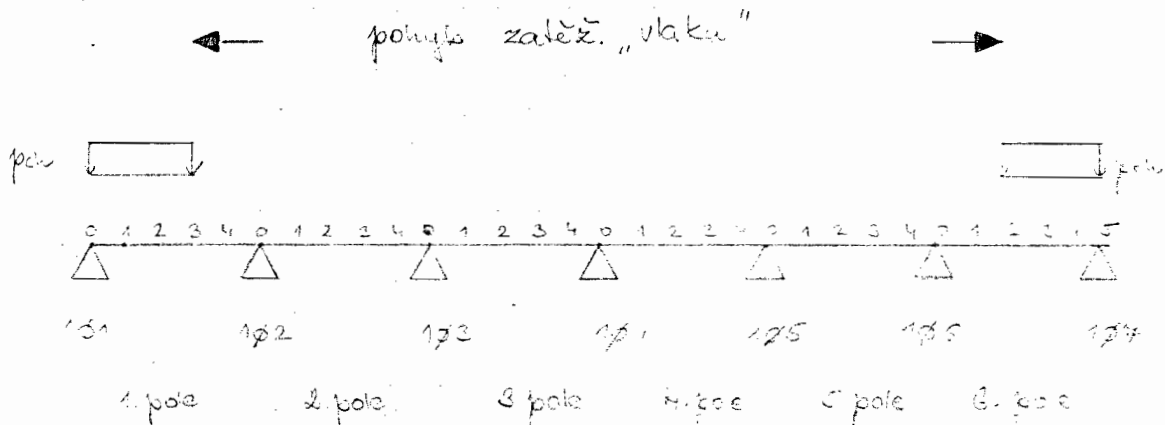 pohyb zatěž. „vlaku"
poh poh
0 1 2 3 4 0 1 2 3 4 0 1 2 3 4 0 1 2 3 4 0 1 2 3 4 0 1 2 3 4 5
1ø1 1ø2 1ø3 1ø5 1ø6 1ø7
1. pole 2. pole 3 pole 4. pole 5 pole 6. pole